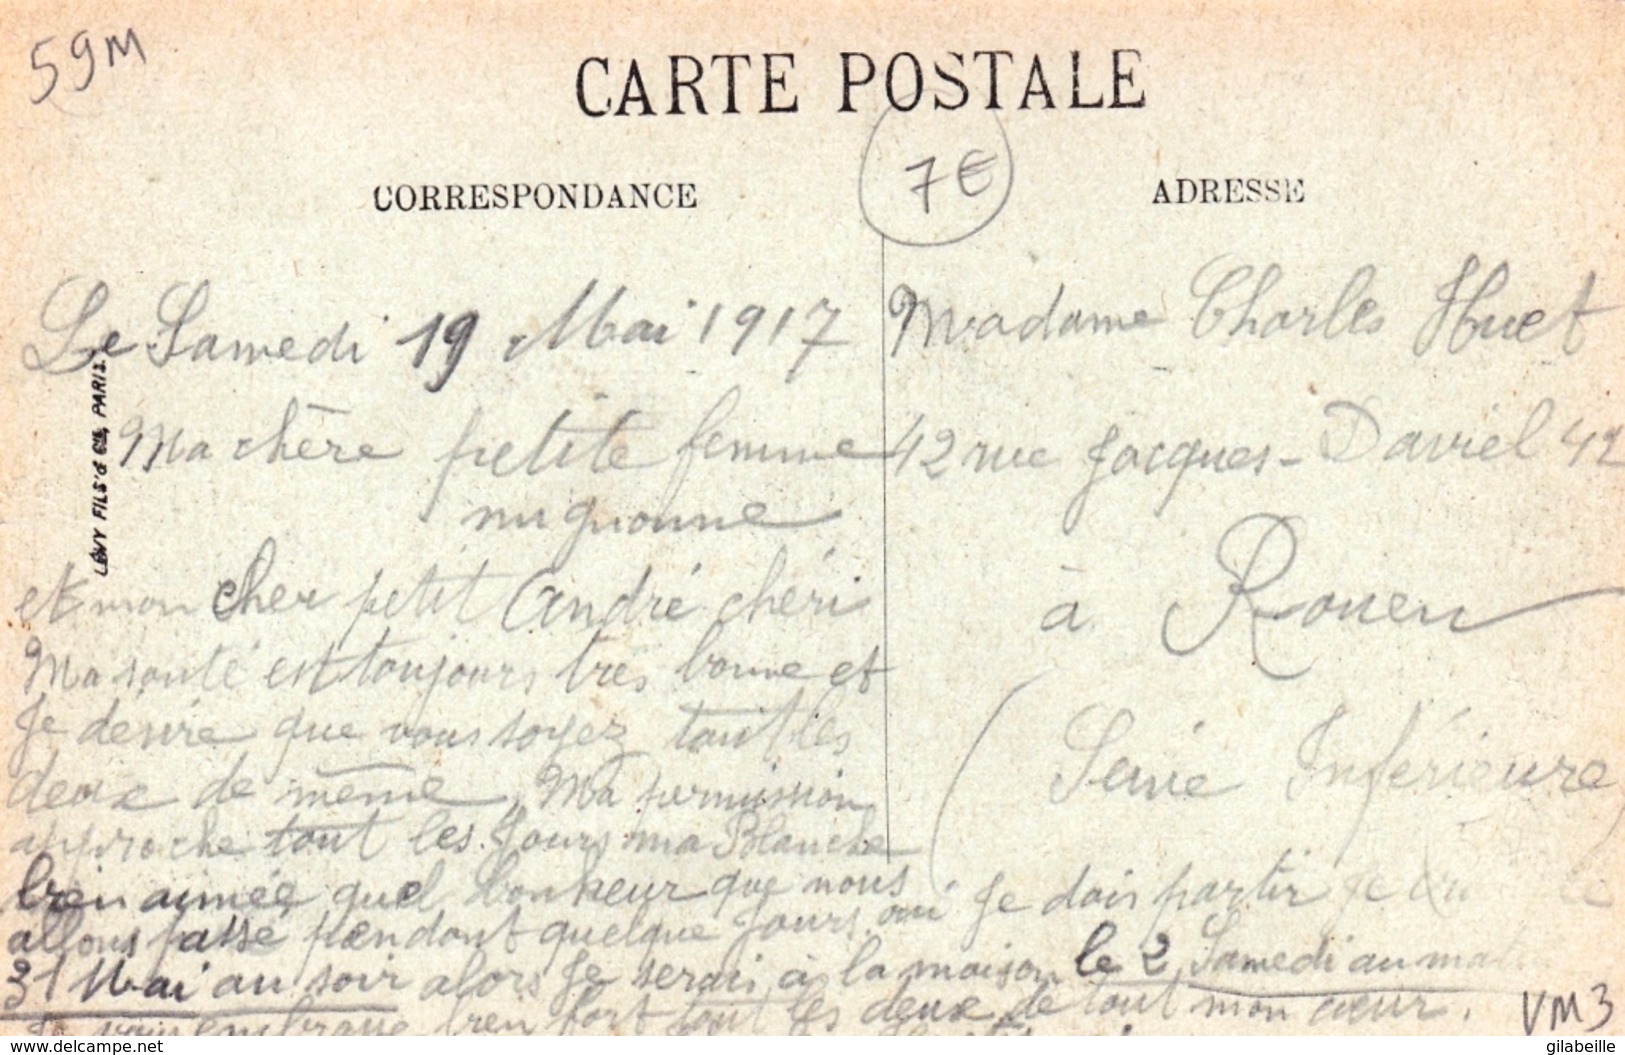 59M
CARTE POSTALE
7€
CORRESPONDANCE
ADRESSE
Le Samedi 19 Mai 1917
Ma chère petite femme
mignonne
et mon cher petit André chéri
Ma santé est toujours très bonne et
Je desire que vous soyez tout les
deux de même, Ma permission
approche tout les Jours ma Blanche
bien aimée quel bonheur que nous
allons passé pendant quelque Jours. oui Je dois partir Je le
31 Mai au soir alors Je serai à la maison le 2, Samedi au matin
Je vous embrasse bien fort tout les deux de tout mon cœur.
Madame Charles Huet
42 rue Jacques-Daviel 42
à Rouen
(Seine Inférieure)
LÉVY FILS & Cie, PARIS.
VM3
www.delcampe.net
gilabeille